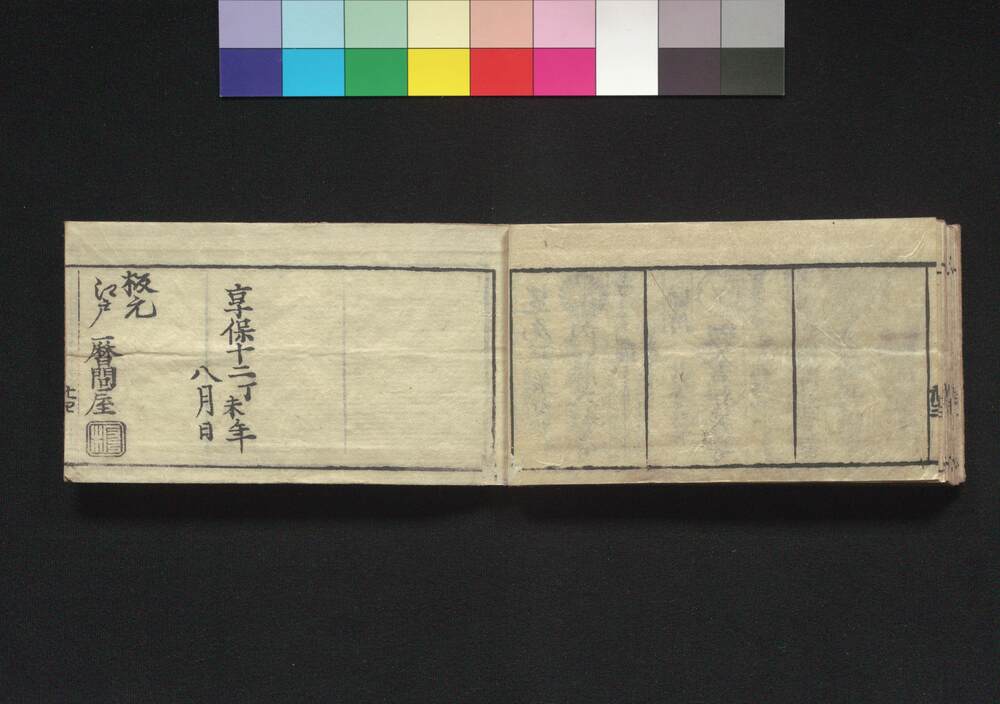 享保十二丁未年
八月日
板元
江戸
暦問屋